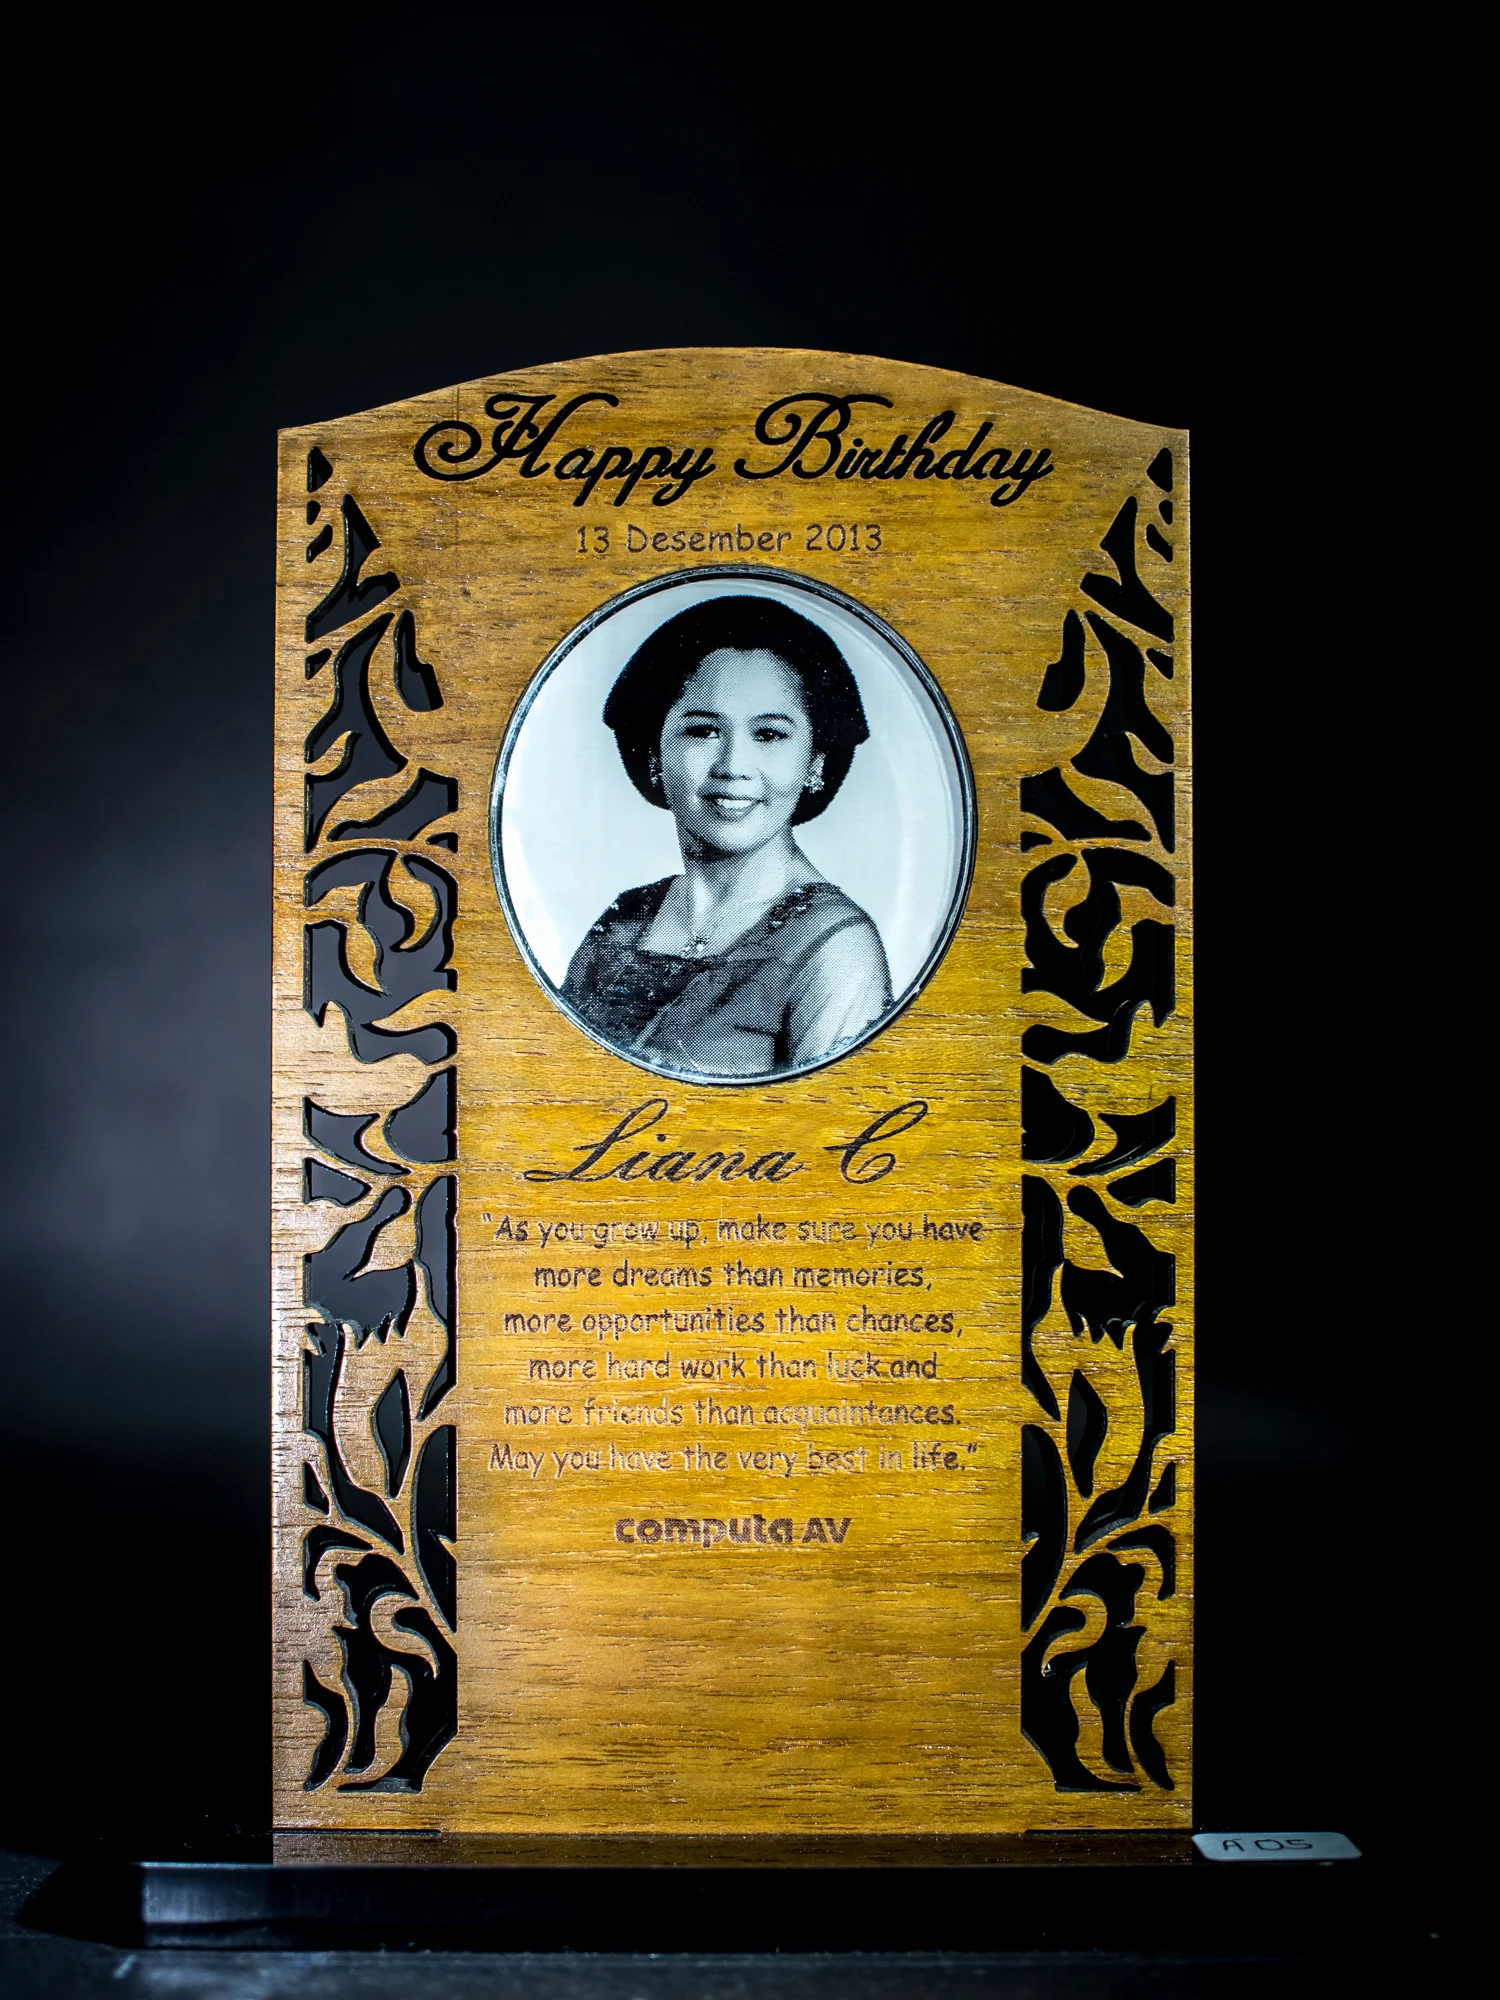 Happy Birthday
13 Desember 2013
Liana C
"As you grow up, make sure you have
more dreams than memories,
more opportunities than chances,
more hard work than luck and
more friends than acquaintances.
May you have the very best in life."
computa AV
A 05